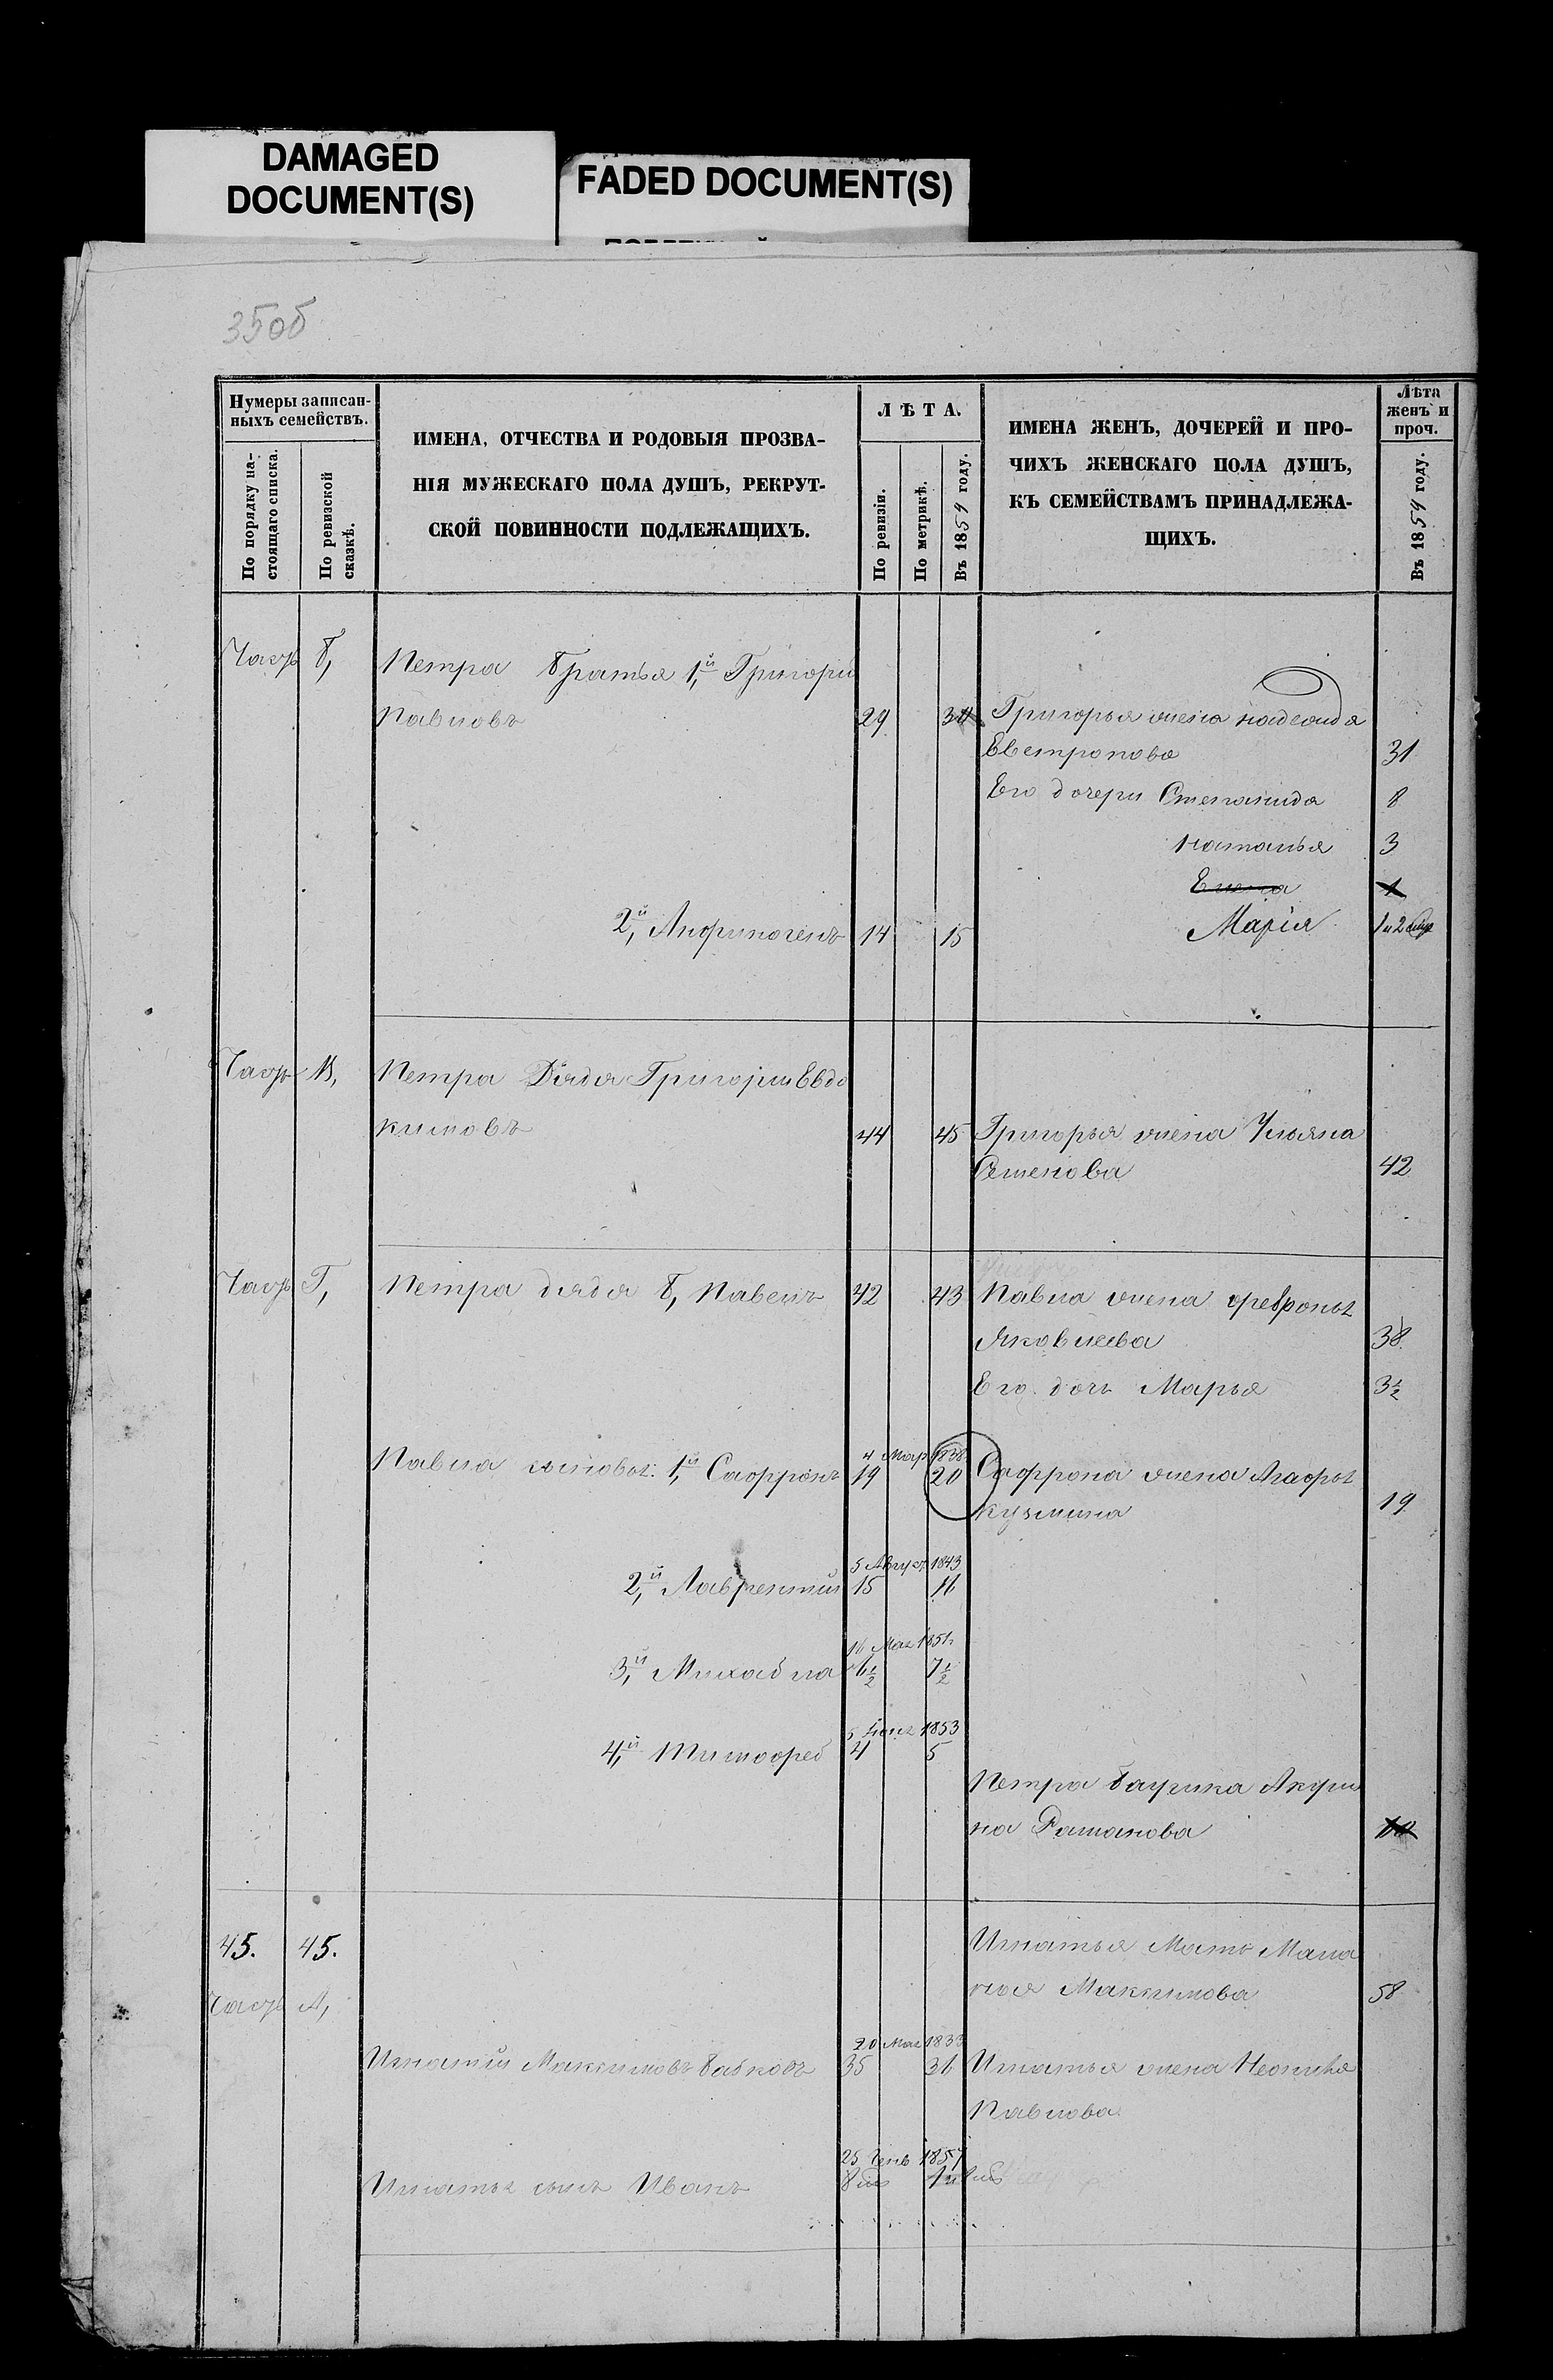 DAMAGED
DOCUMENT(S)
FADED DOCUMENT(S)
35об
Нумеры записан-
ныхъ семействъ.
По порядку на-
стоящаго списка.
По ревизской
сказкѣ.
ИМЕНА, ОТЧЕСТВА И РОДОВЫЯ ПРОЗВА-
НІЯ МУЖЕСКАГО ПОЛА ДУШЪ, РЕКРУТ-
СКОЙ ПОВИННОСТИ ПОДЛЕЖАЩИХЪ.
ЛѢТА.
По ревизіи.
По метрикѣ.
Въ 1859 году.
ИМЕНА ЖЕНЪ, ДОЧЕРЕЙ И ПРО-
ЧИХЪ ЖЕНСКАГО ПОЛА ДУШЪ,
КЪ СЕМЕЙСТВАМЪ ПРИНАДЛЕЖА-
ЩИХЪ.
Лѣта
женъ и
проч.
Въ 1859 году.
Часть б, Петра братья 1,й Григорій
Павловъ 29 Григорья жена
Евстропова 31
Его дочери Степанида 8
Наталья 3
Елена 1
2,й Анфиногенъ 14 15 Марія
Часть В, Петра дядя Григорій Евдо
кимовъ 44 45 Григорья жена Ульяна
Семенова 42
Часть Г, Петра дядя б, Павелъ 42 43 Павла жена Февронья
Яковлева 38
Его дочь Марья 3½
4 Мар 1838
Павла сыновья: 1,й Сафронъ 19 20 Сафрона жена Агафья
Кузьмина 19
5 Август 1843
2,й Лаврентій 15 16
16 Мая 1851
3,й Михайла 6½ 7½
5 1853
4,й Тимофей 4 5
Петра бабушка Акули
на Романова
45. 45. Игнатья мать Мала
нья Максимова 58
Часть А,
20 Мая 1833
Игнатій Максимовъ Бабковъ 35 36 Игнатья жена
Павлова
25 1857
Игнатья сынъ Иванъ